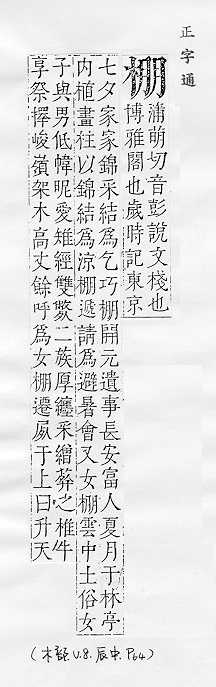 正字通
棚
蒲萌切音彭說文棧也
博雅閣也歲時記東京
七夕家家錦采結爲乞巧棚開元遺事長安富人夏月于林亭
内植畫柱以錦結爲涼棚遞請爲避暑會又女棚雲中土俗女
子與男低幃昵愛雉經雙斃二族厚纏采繒葬之椎牛
享祭擇峻嶺架木高丈餘呼爲女棚遷屍于上曰升天
(木部 V.8. 辰中. P.64)